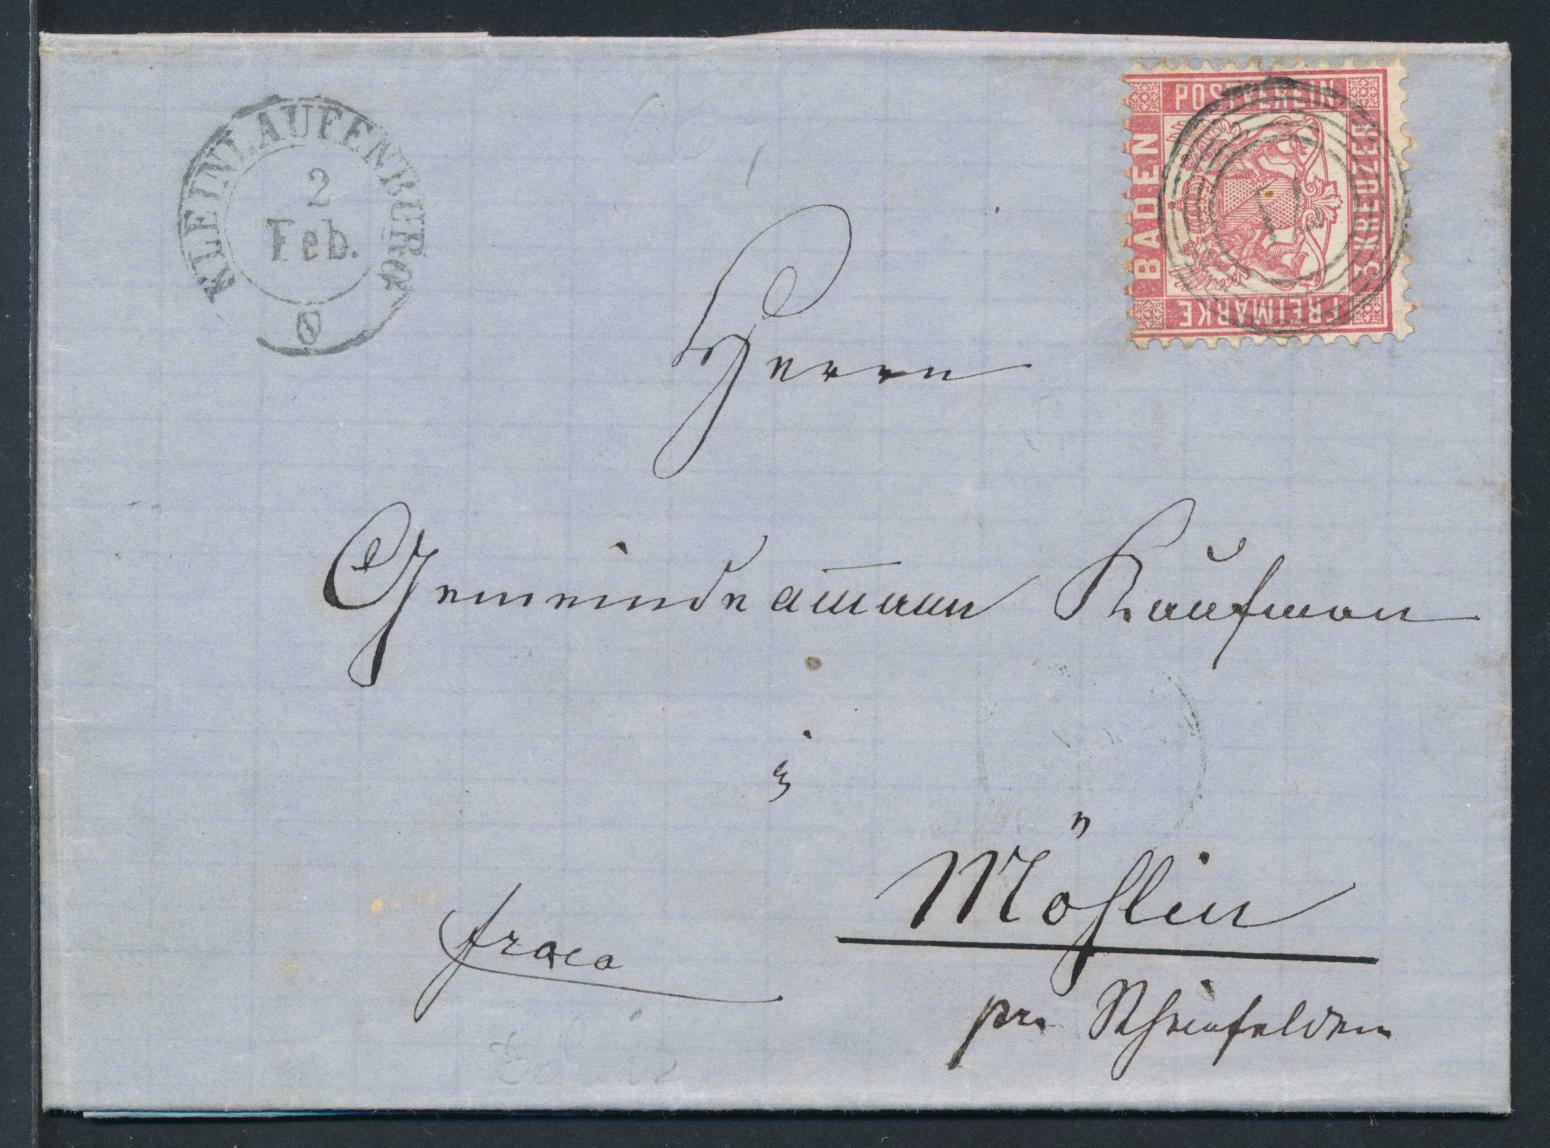 KLEINLAUFENBURG
2
Feb.
BADEN
POSTVEREIN
3 KREUZER
FREIMARKE
Herrn
Gemeindeammann Kaufman
in
Möhlin
franco
pr. Rheinfelden